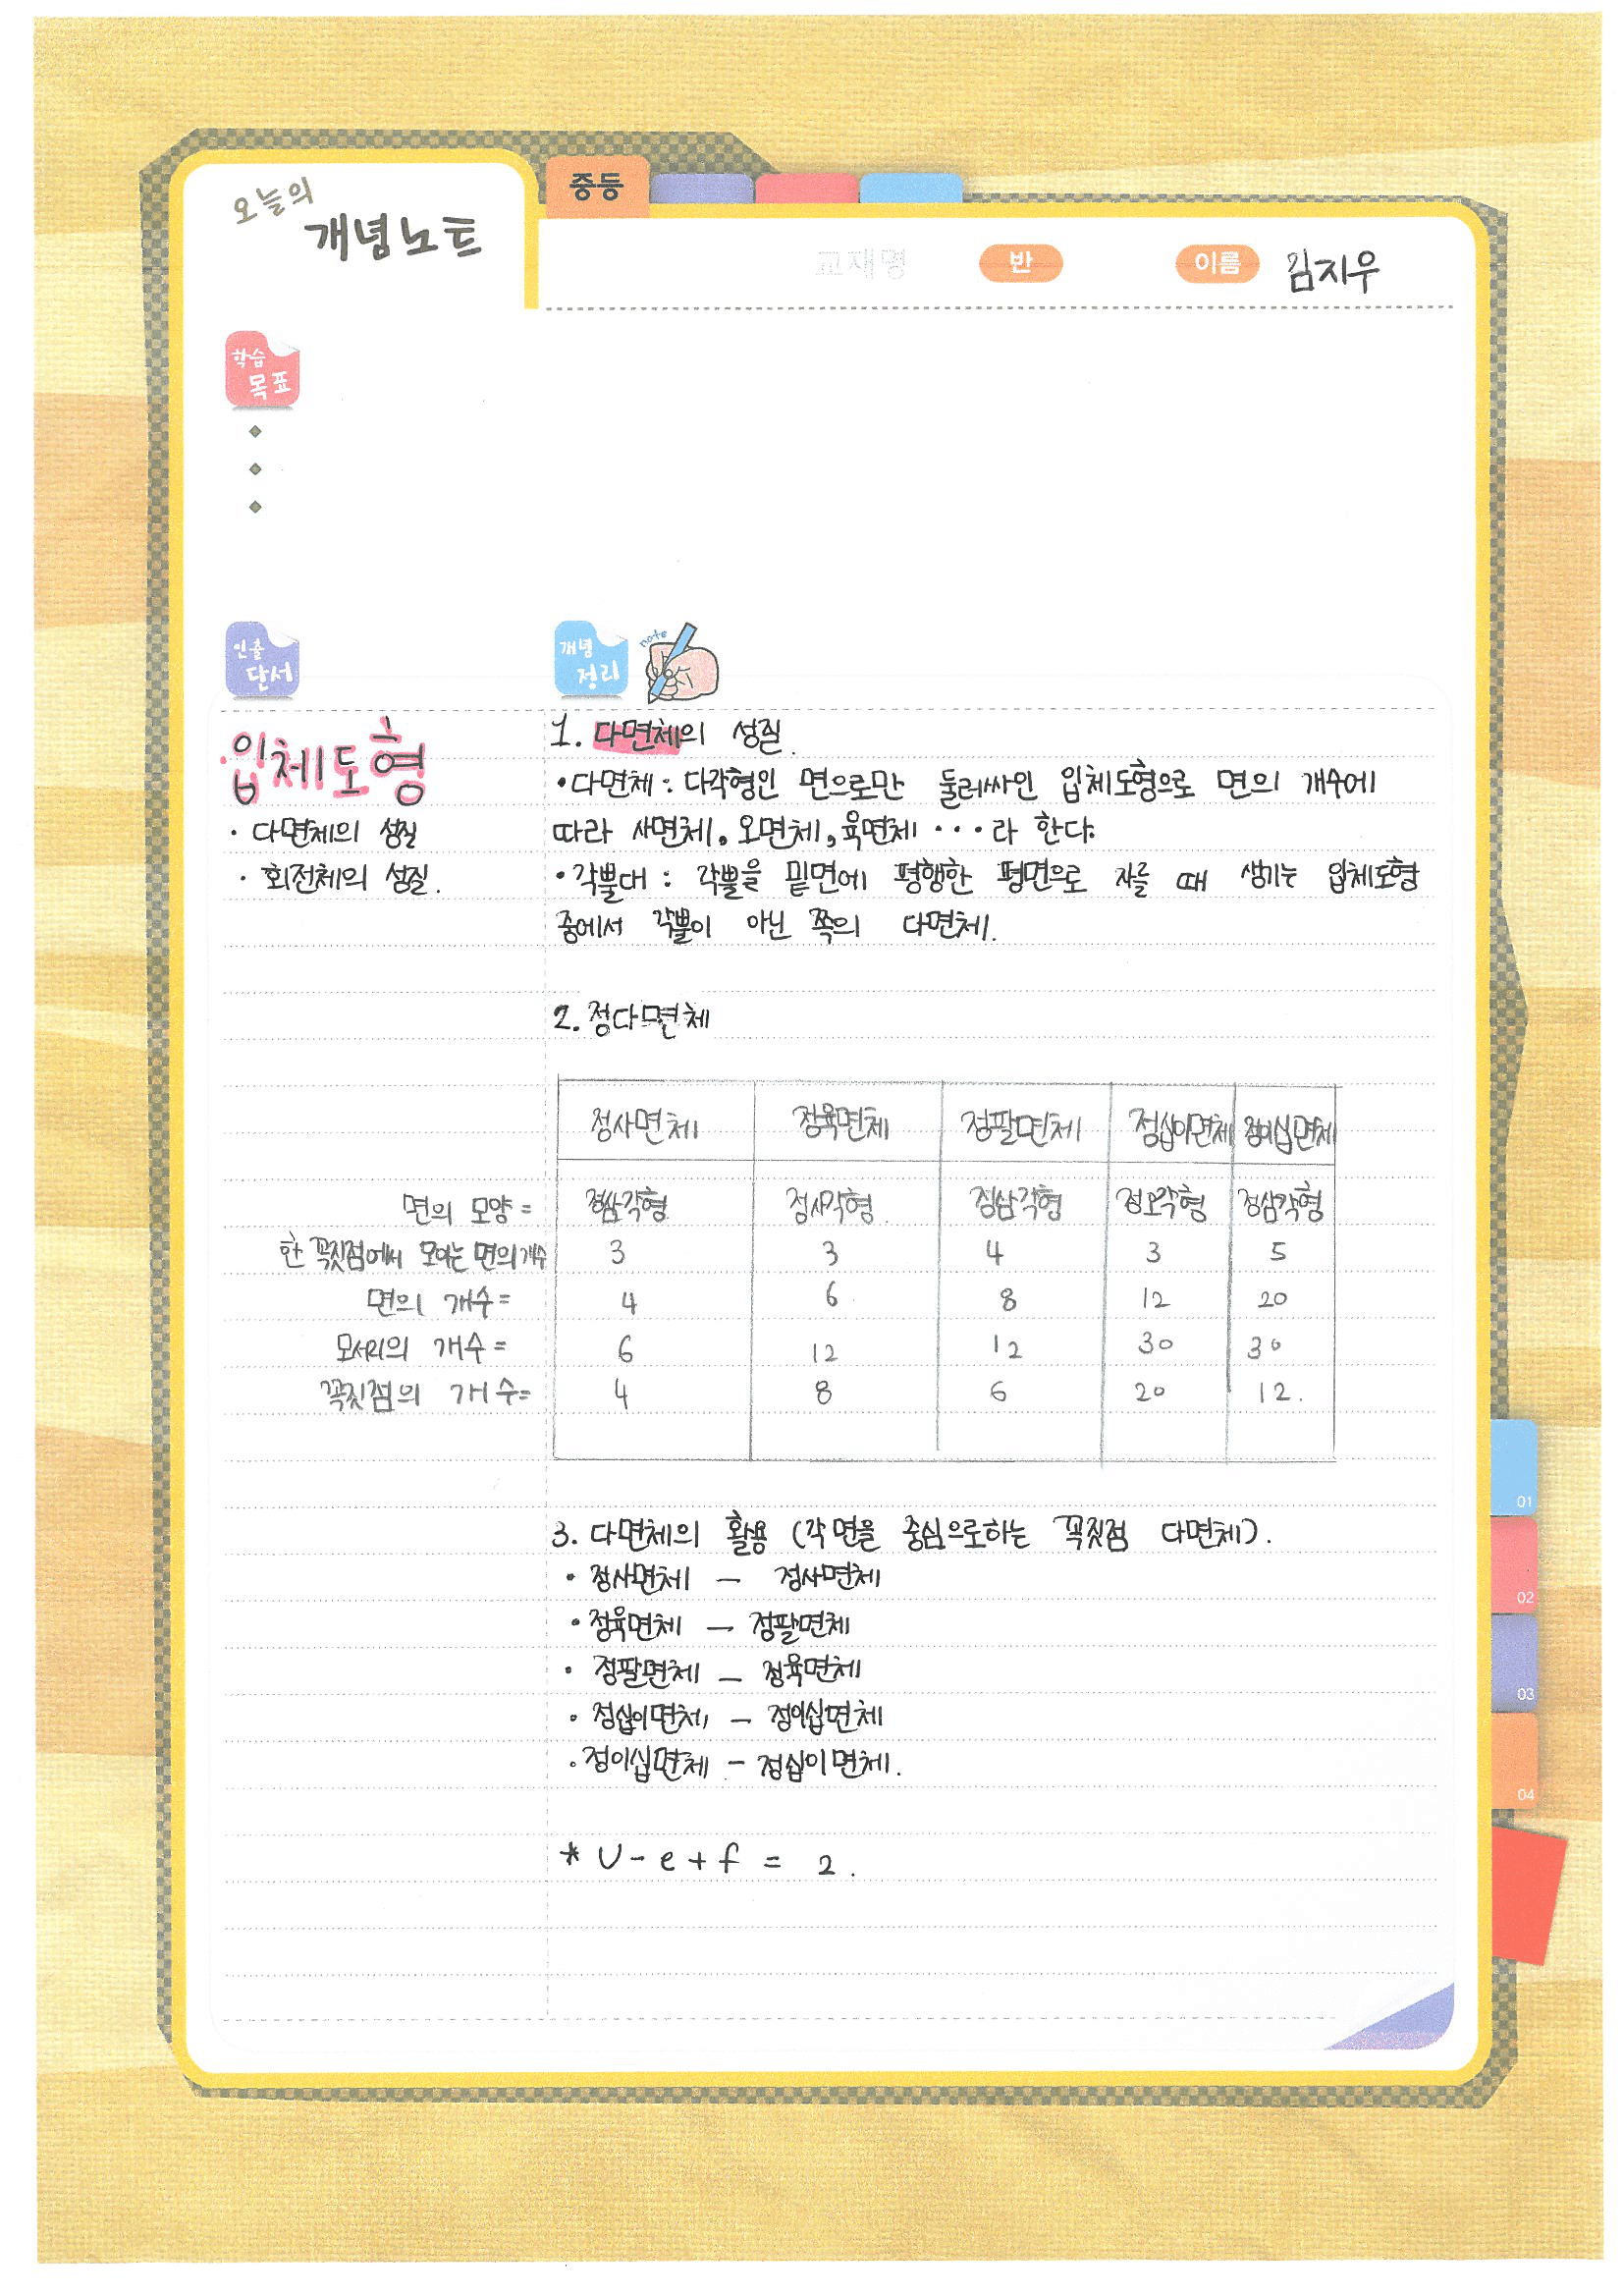 오늘의
개념노트
중등
교재명 반 이름 김지우
학습
목표
인출
단서
개념
정리
note
입체도형
· 다면체의 성질
· 회전체의 성질.
1. 다면체의 성질.
· 다면체 : 다각형인 면으로만 둘러싸인 입체도형으로 면의 개수에
따라 사면체, 오면체, 육면체 ··· 라 한다.
· 각뿔대 : 각뿔을 밑면에 평행한 평면으로 자를 때 생기는 입체도형
중에서 각뿔이 아닌 쪽의 다면체.
2. 정다면체
정사면체 정육면체 정팔면체 정십이면체 정이십면체
면의 모양 = 정삼각형 정사각형. 정삼각형 정오각형 정삼각형
한 꼭짓점에서 모이는 면의 개수 3 3 4 3 5
면의 개수 = 4 6 8 12 20
모서리의 개수 = 6 12 12 30 30
꼭짓점의 개수 = 4 8 6 20 12.
3. 다면체의 활용 (각 면을 중심으로하는 꼭짓점 다면체).
· 정사면체 — 정사면체
· 정육면체 — 정팔면체
· 정팔면체 — 정육면체
· 정십이면체 — 정이십면체
· 정이십면체 - 정십이면체.
* v - e + f = 2.
01
02
03
04